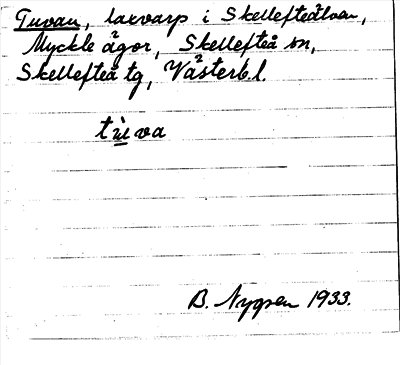 Tuvan, laxvarp i Skellefteälven,
Myckle ägor, Skellefteå sn,
Skellefteå tg, Västerb. l.
tù̱va
B. Nygren 1933.